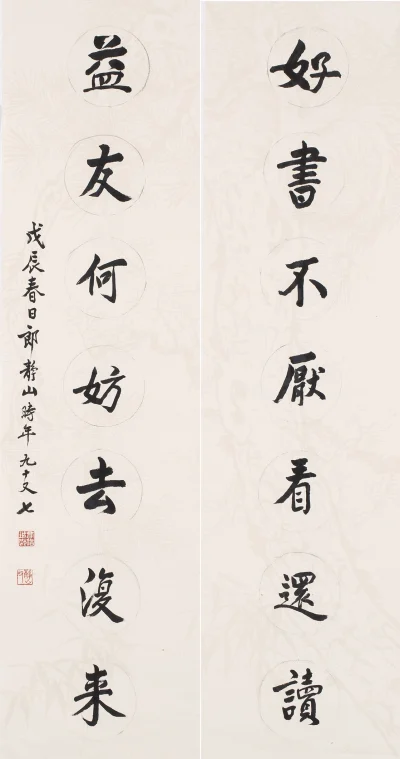 好書不厭看還讀
益友何妨去復来
戊辰春日郎靜山時年九十又七